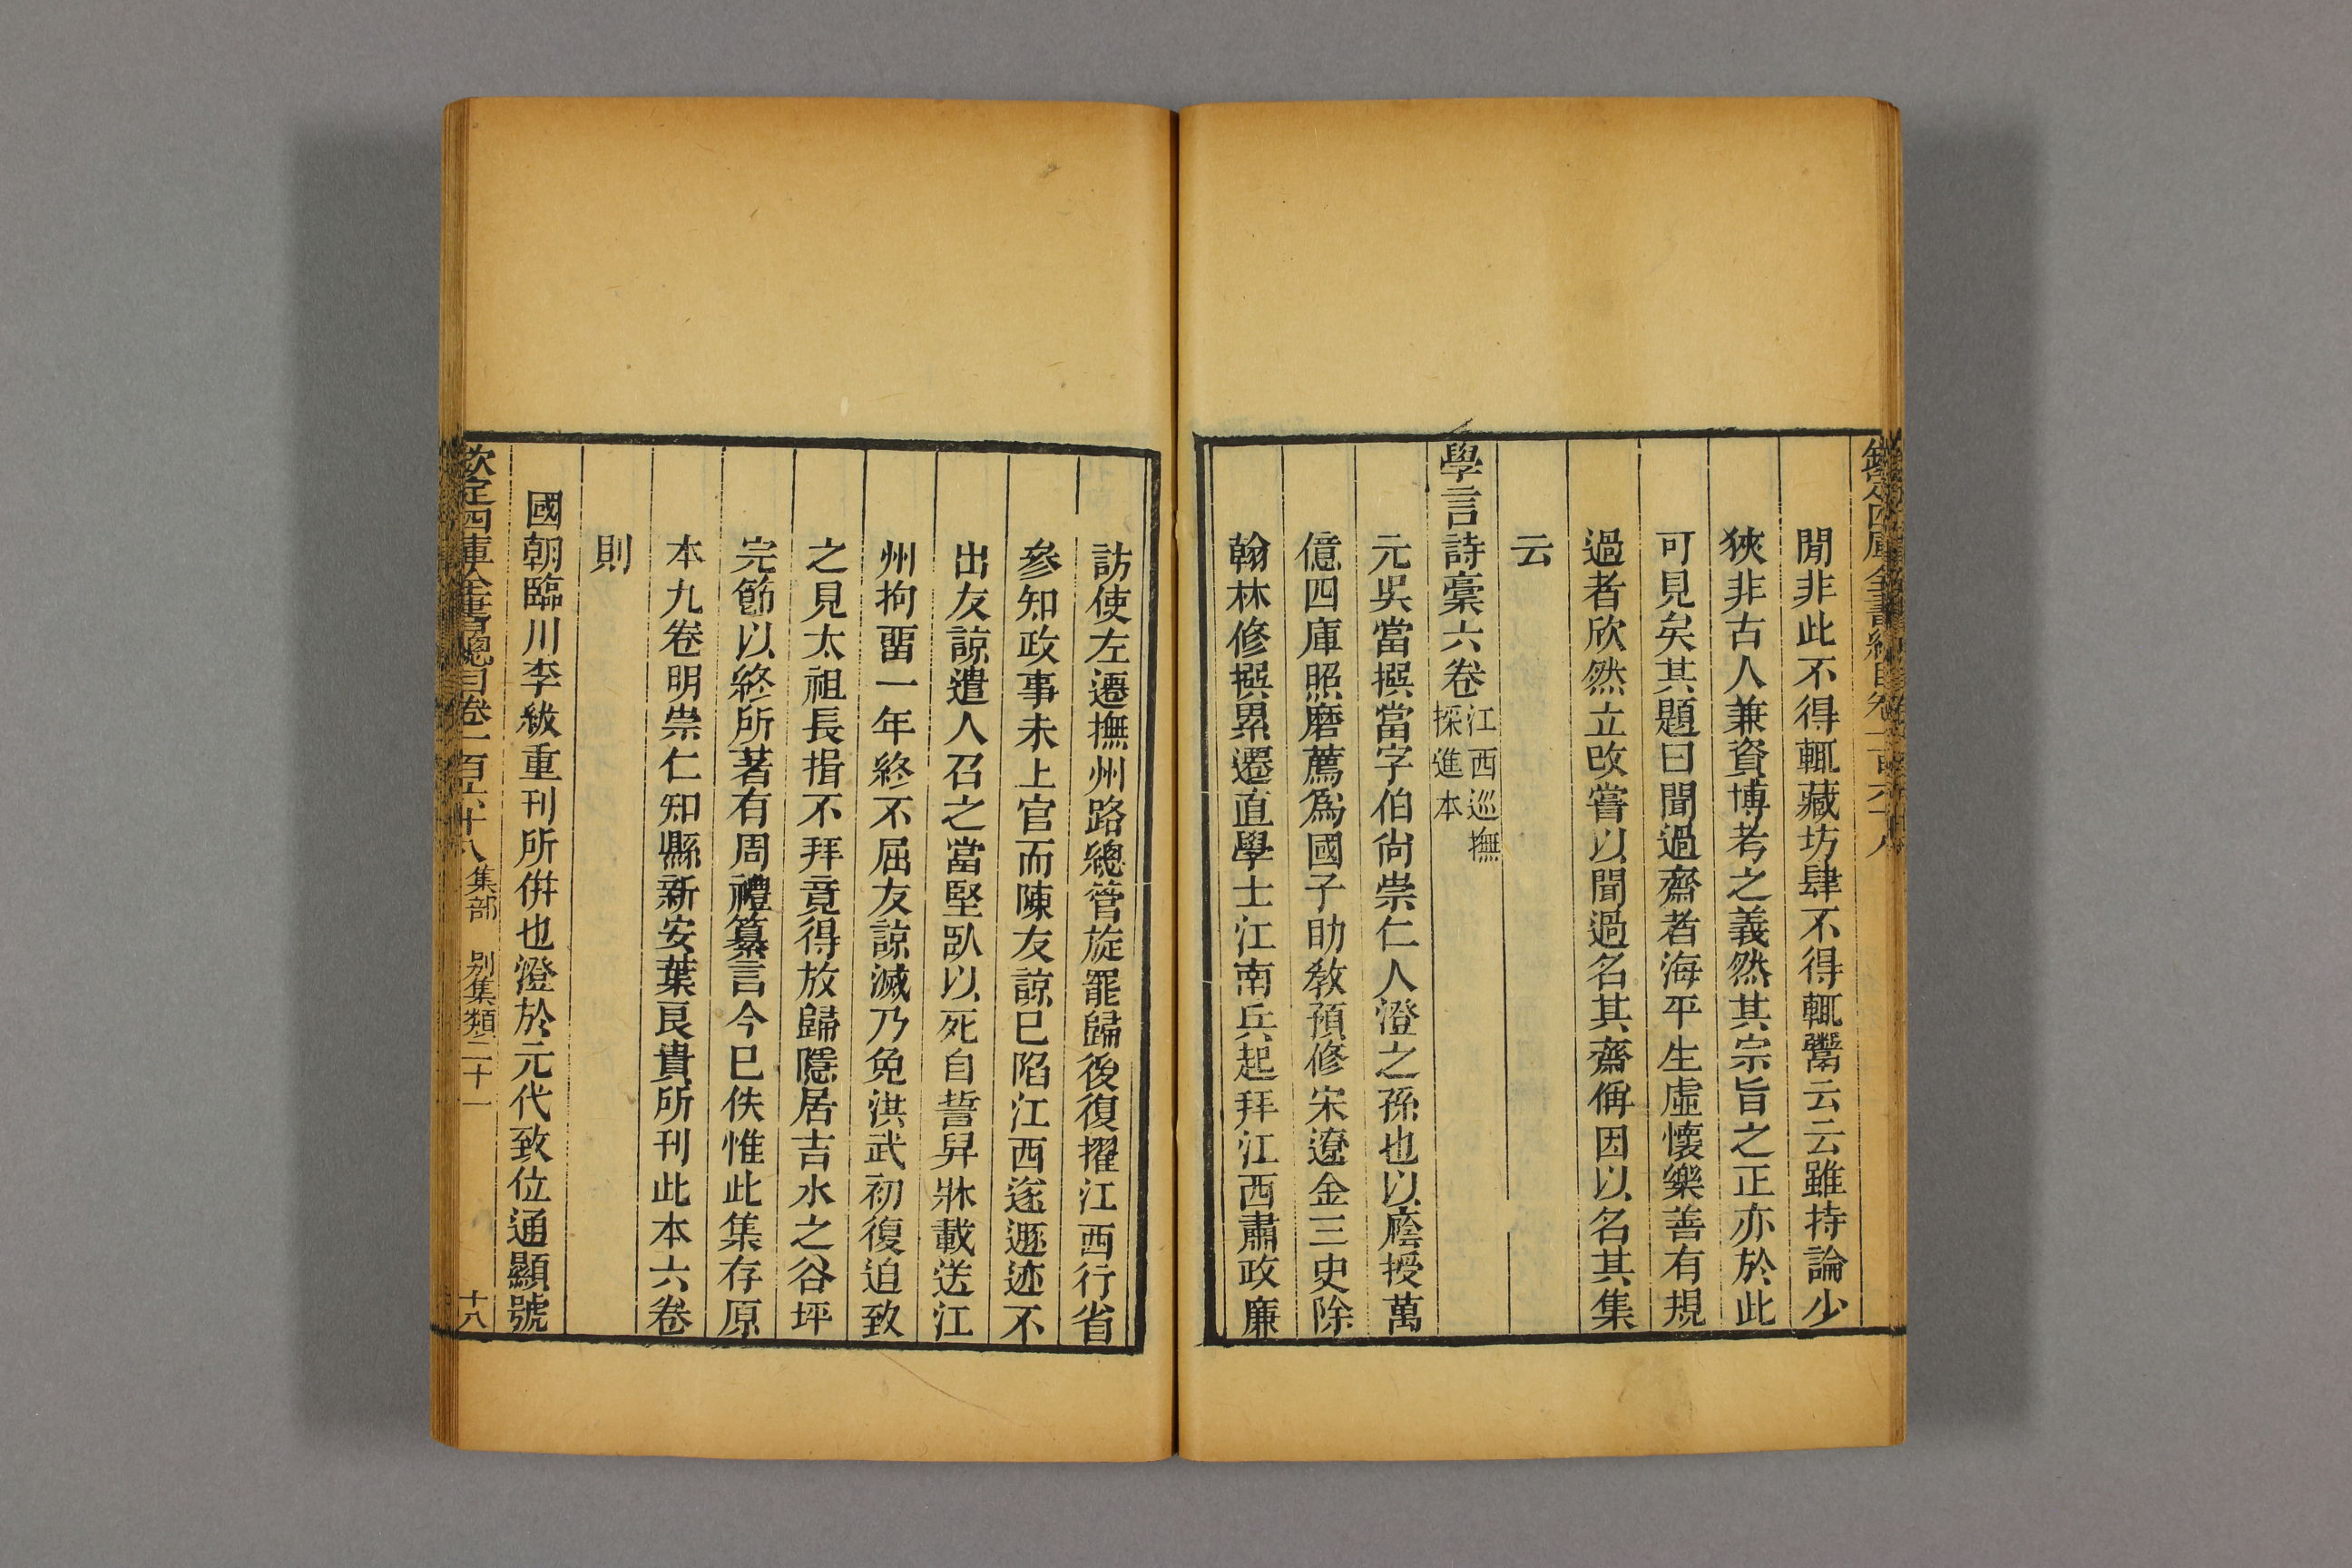 欽定四庫全書總目卷一百六十八
閒非此不得輒藏坊肆不得輒鬻云云雖持論少
狹非古人兼資博考之義然其宗旨之正亦於此
可見矣其題曰聞過齋者海平生虛懷樂善有規
過者欣然立改嘗以聞過名其齋偁因以名其集
云
學言詩藁六卷江西巡撫採進本
元吳當撰當字伯尙崇仁人澄之孫也以廕授萬
億四庫照磨薦爲國子助敎預修宋遼金三史除
翰林修撰累遷直學士江南兵起拜江西肅政廉
訪使左遷撫州路總管旋罷歸後復擢江西行省
參知政事未上官而陳友諒已陷江西遂遯迹不
出友諒遣人召之當堅臥以死自誓舁牀載送江
州拘畱一年終不屈友諒滅乃免洪武初復迫致
之見太祖長揖不拜竟得放歸隱居吉水之谷坪
完節以終所著有周禮纂言今已佚惟此集存原
本九卷明崇仁知縣新安葉良貴所刊此本六卷
則
國朝臨川李紱重刊所倂也澄於元代致位通顯號
欽定四庫全書總目卷一百六十八 集部 別集類二十一 十八